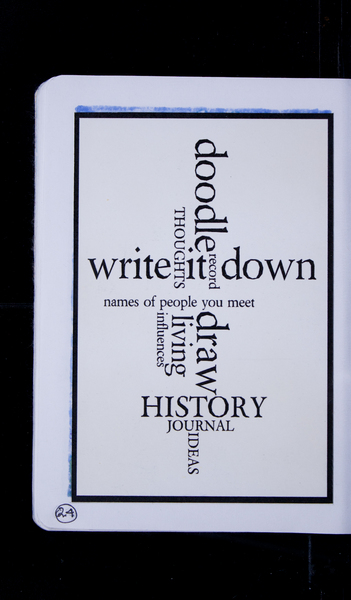 doodle
THOUGHTS
record
write it down
names of people you meet
influences
living
draw
HISTORY
JOURNAL
IDEAS
24